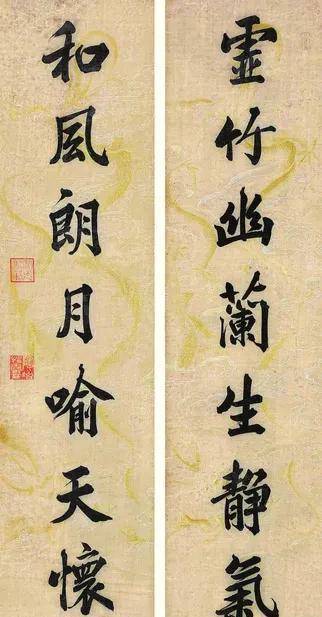 虚竹幽蘭生静氣
和風朗月喻天懷